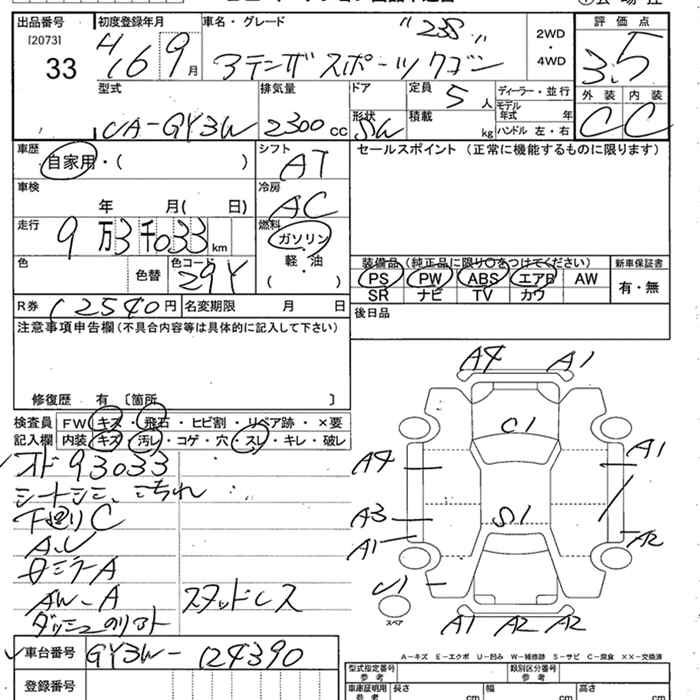 出品番号 初度登録年月 車名・グレード 評価点
[2073] H16 9月 "23S" 2WD・4WD 3.5
33 アテンザスポーツワゴン 外装 内装
型式 排気量 ドア 定員 5人 ディーラー・並行 C C
UA-GY3W 2300cc 形状 SW 積載 kg モデル年式 年 ハンドル 左・右
車歴 自家用・( ) シフト AT セールスポイント (正常に機能するものに限ります)
車検 年 月( 日) 冷房 AC
走行 9万3千033km 燃料 ガソリン・軽・油 ( )
色 色替 色コード 29Y
装備品 (純正品に限り○をつけてください) 新車保証書
PS PW ABS エアB AW 有・無
SR ナビ TV カワ
R券 12540円 名変期限 月 日 後日品
注意事項申告欄(不具合内容等は具体的に記入して下さい)
修復歴 有 〔箇所 〕
検査員 FW キズ・飛石・ヒビ割・リペア跡・×要
記入欄 内装 キズ・汚レ・コゲ・穴・スレ・キレ・破レ
オド93033
シートシミ、こちれ
下廻りC
AW-A スタッドレス
車台番号 GY3W-124390
登録番号
A4 A1
C1
A4 A1
A3 S1
A1 A2
U1
スペア
A1 A2 A2
A-キズ E-エクボ U-凹み W-補修跡 S-サビ C-腐食 ××-交換済
型式指定番号 参考 類別区分番号 参考
車庫証明用 参考 長さ cm 幅 cm 高さ cm